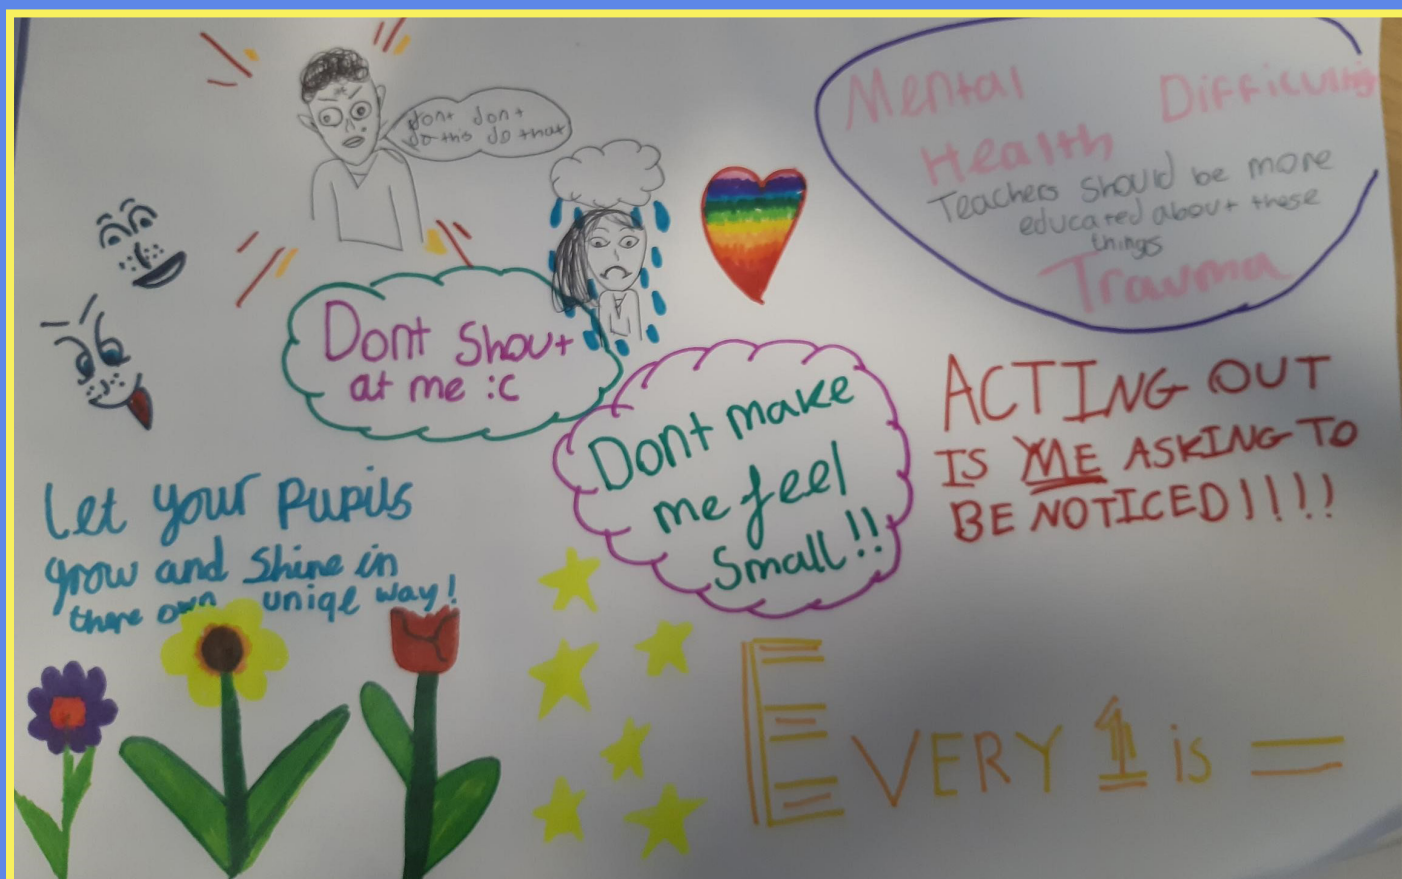 dont don t
do this do that
Mental Difficulties
Health
Teachers should be more
educated about these
things
Trauma
Dont Shout
at me :c
Dont make
me feel
Small!!
ACTING OUT
IS ME ASKING TO
BE NOTICED!!!!
Let your Pupils
grow and Shine in
there own uniqe way!
EVERY 1 is =